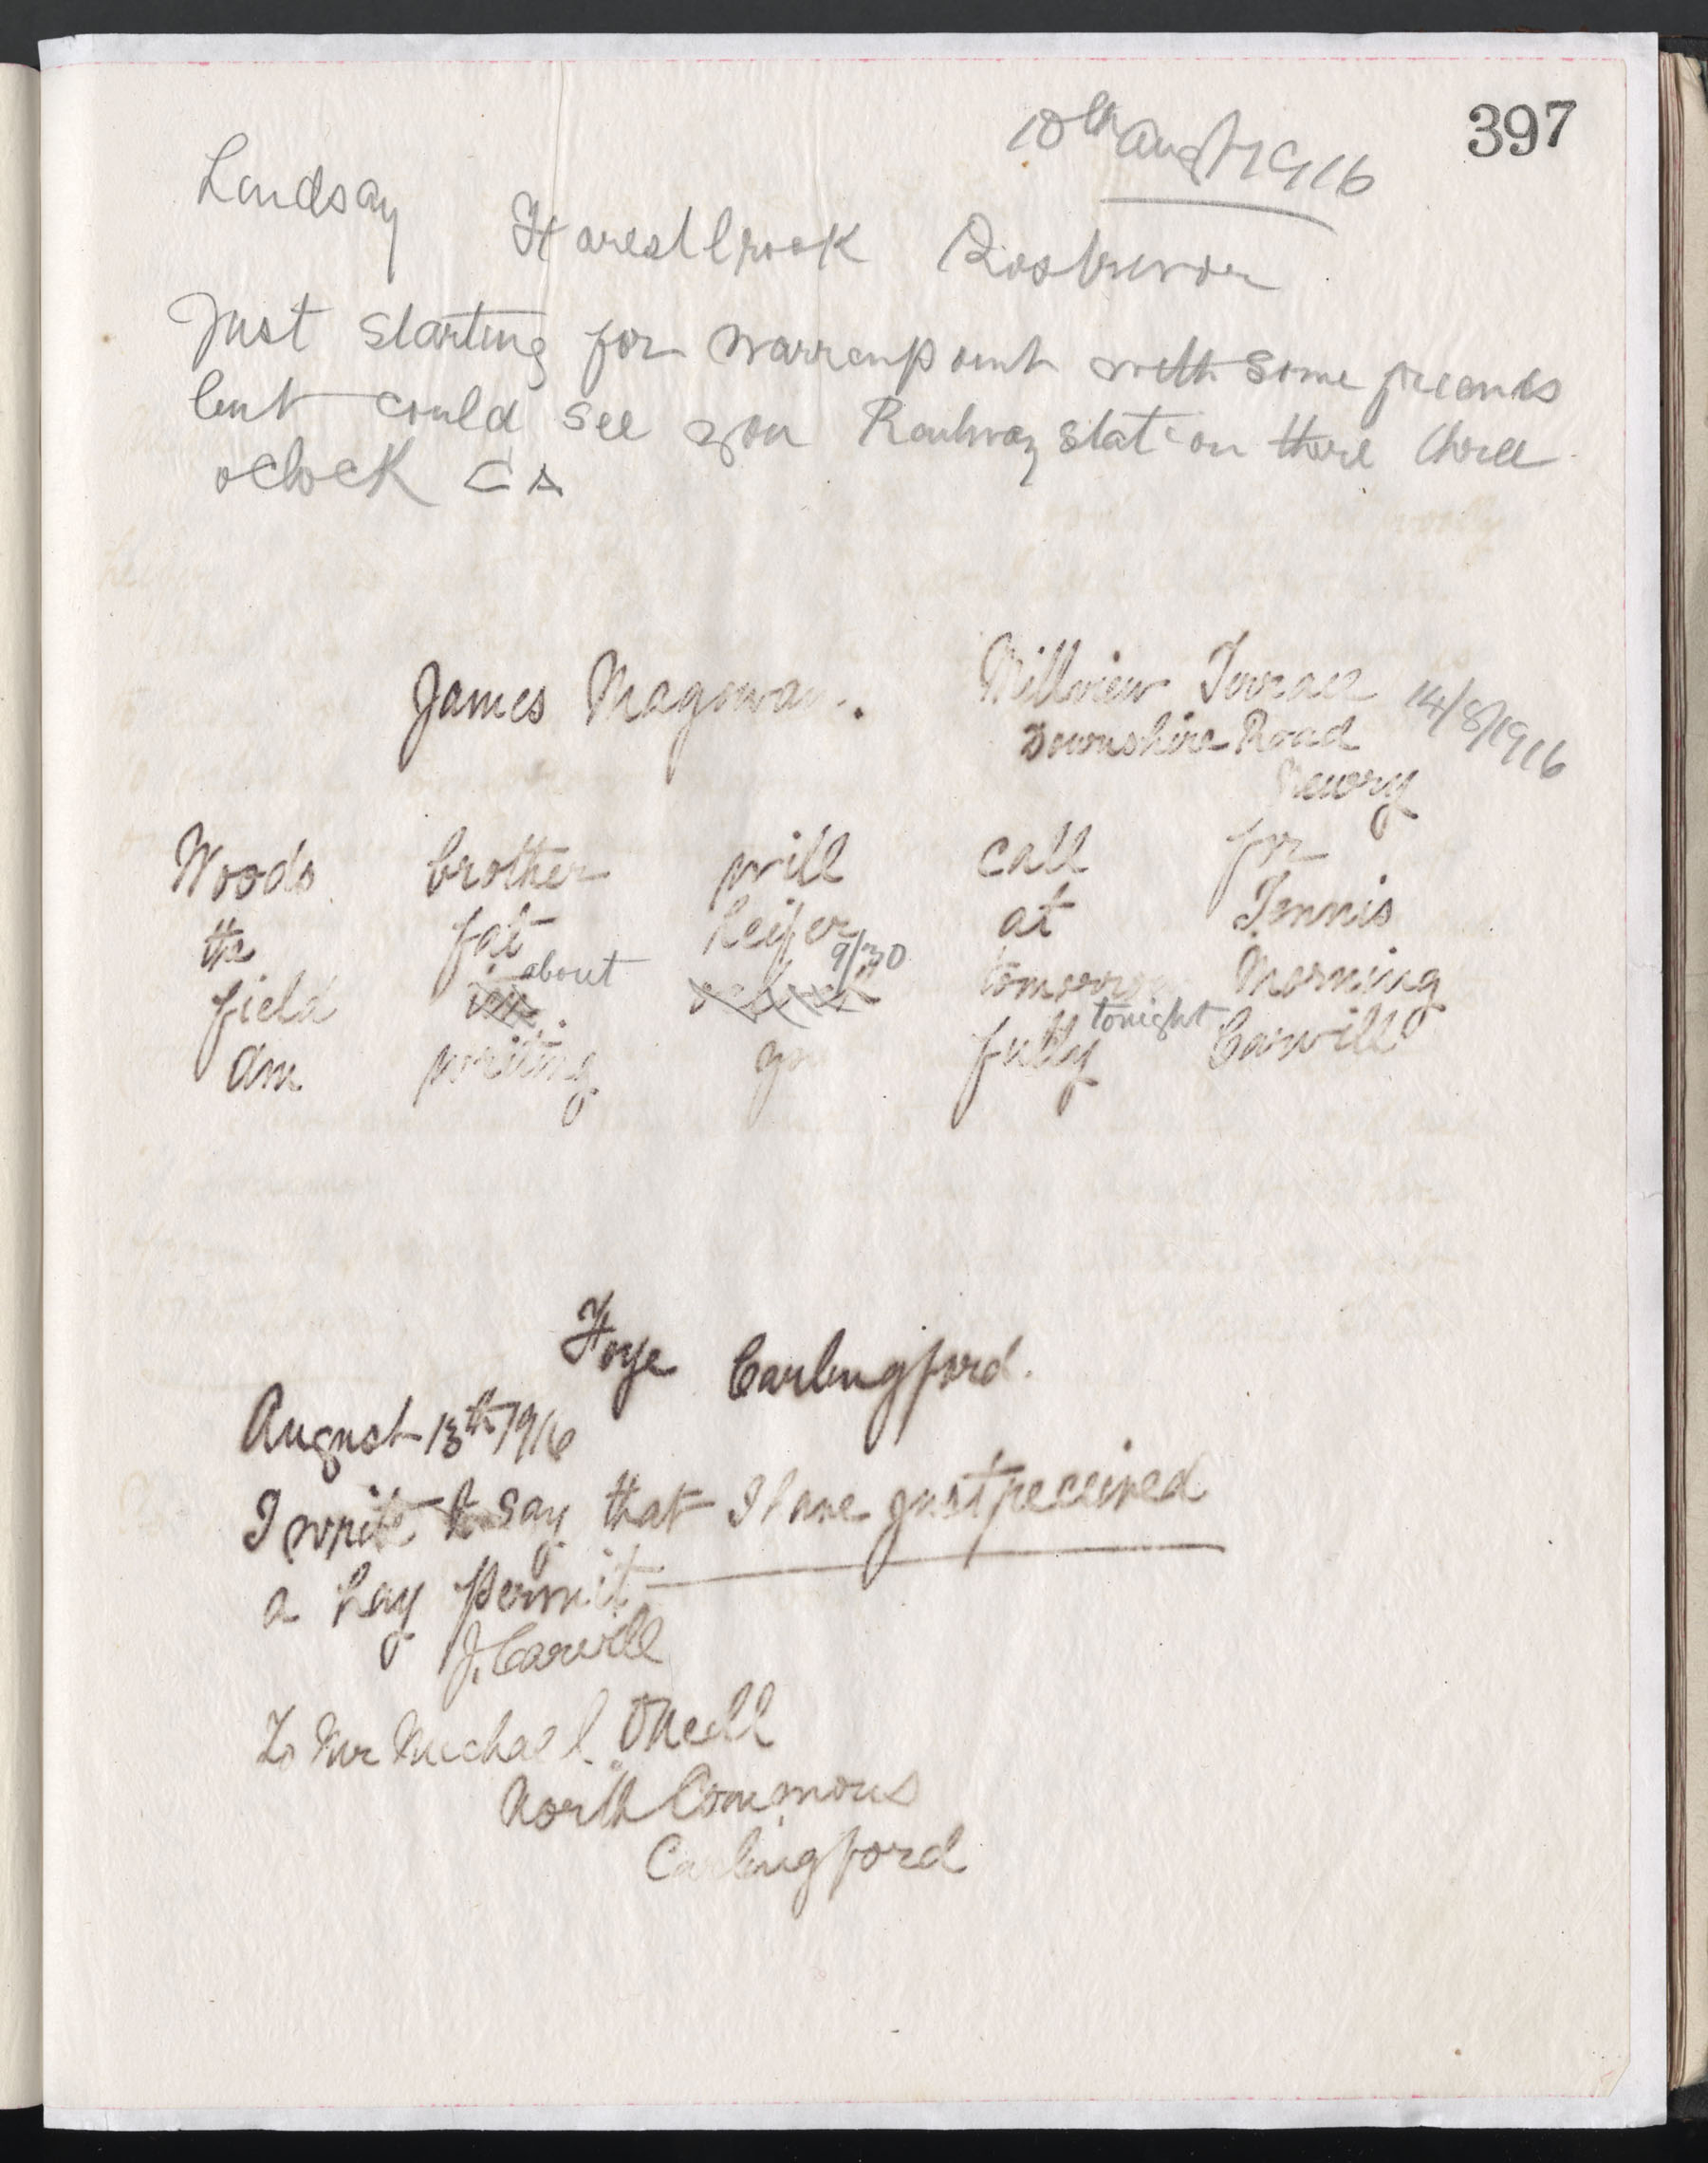 397
10th Augt 1916
Lindsay Forestbrook Rostrevor
Just starting for Warrenpoint with some friends
but could see you Railway station there three
oclock
James Magowan.
Millview Terrace 14/8/1916
Devonshire Road
Newry
Woods brother will call for
the fat heifer at Tennis
about 9/30
field oclock tomorrow Morning
tonight
Am writing you fully Carvill
Foye Carlingford.
August 13th 1916
I write to say that I have just received
a hay permit
J. Carvill
To Mr Michael ONeill
North Commons
Carlingford